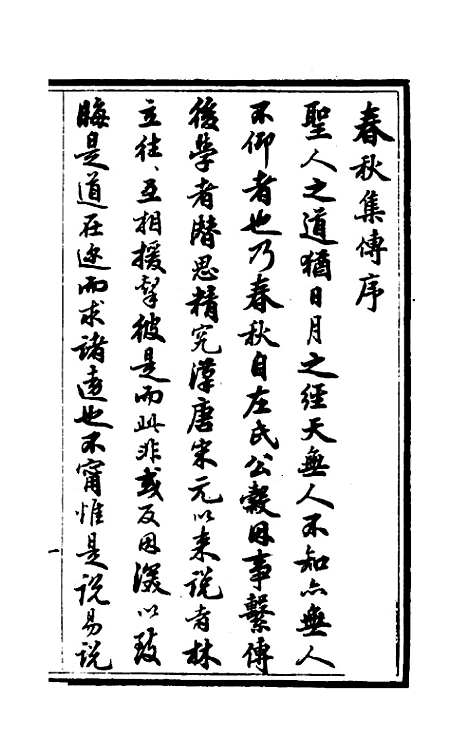 春秋集傳序
聖人之道猶日月之經天無人不知亦無人
不仰者也乃春秋自左氏公穀因事繫傳
後學者潛思精究漢唐宋元以来說者林
立往、互相援擊彼是而此非或反因深以致
晦是道在迩而求諸遠也不甯惟是说易说
一